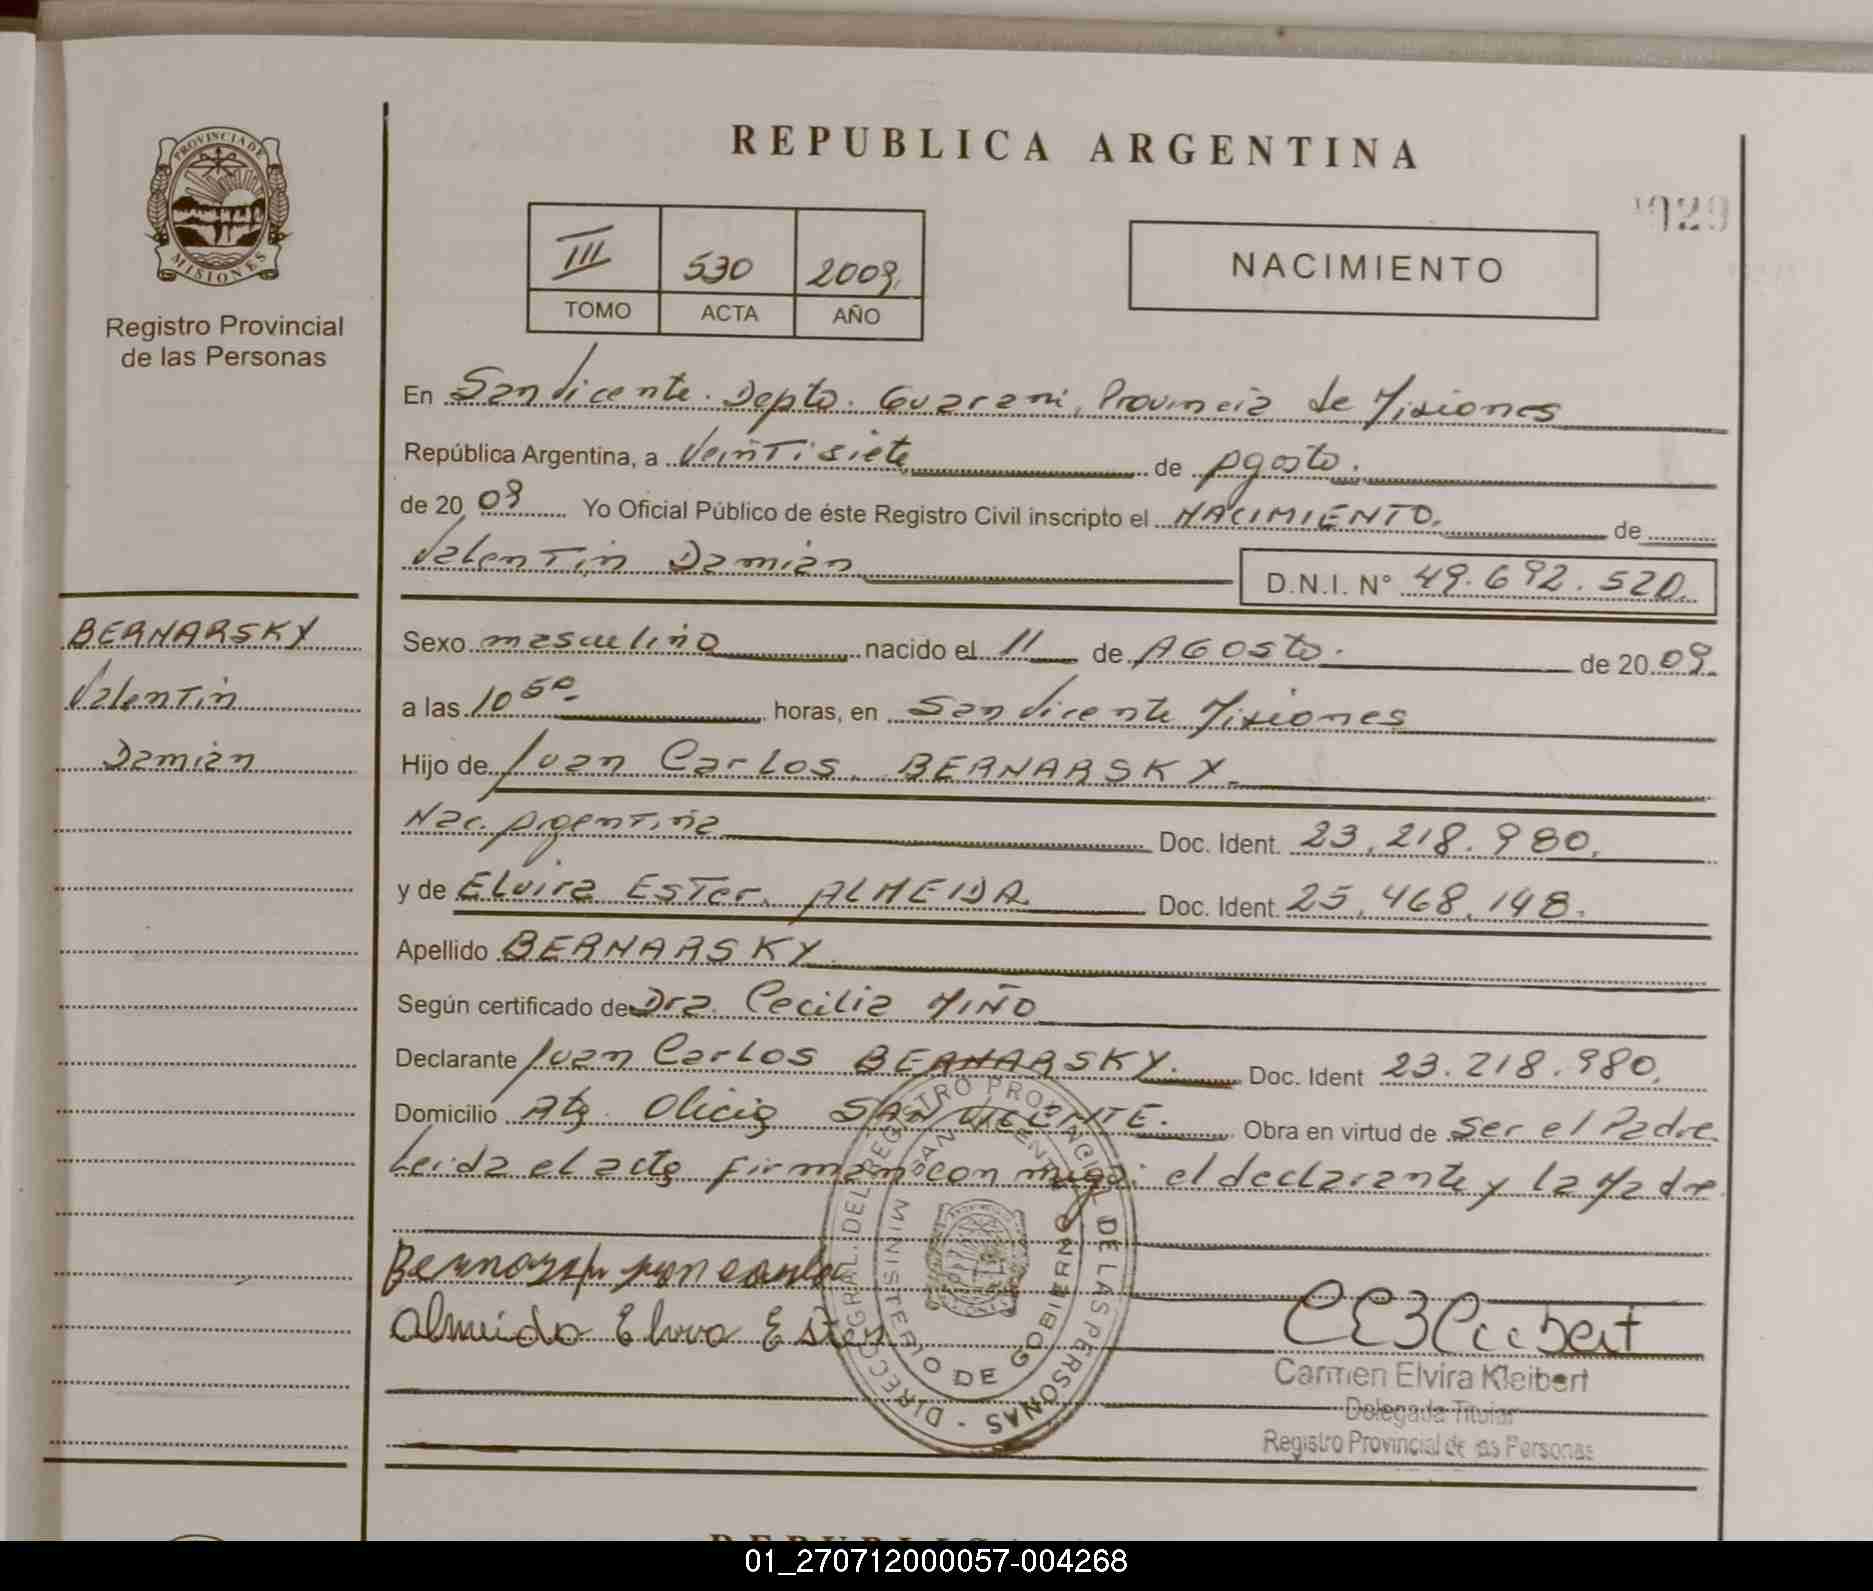 REPUBLICA ARGENTINA
029
PROVINCIA DE MISIONES
Registro Provincial
de las Personas
III 530 2009.
TOMO ACTA AÑO
NACIMIENTO
En San Vicente. Depto. Guarani, Provincia de Misiones
República Argentina, a Veintisiete de Agosto.
de 20 09 Yo Oficial Público de éste Registro Civil inscripto el NACIMIENTO. de
Valentin Damián D.N.I. N° 49.692.520.
BERNARSKY
Valentin
Damián
Sexo masculino nacido el 11 de AGOSTO. de 20 09.
a las 10 50. horas, en San Vicente Misiones
Hijo de Juan Carlos. BERNARSKY.
Nac. Argentina Doc. Ident. 23.218.980.
y de Elvira Ester. ALMEIDA Doc. Ident. 25.468.148.
Apellido BERNARSKY
Según certificado de Dra. Cecilia MIÑO
Declarante Juan Carlos BERNARSKY. Doc. Ident 23.218.980.
Domicilio SAN VICENTE. Obra en virtud de ser el Padre
Leida el acta firman con migo: el declarante y la Madre
Almeida Elvira Ester
DIRECC. GRAL. DEL REGISTRO PROVINCIAL DE LAS PERSONAS -
SAN VICENTE
MINISTERIO DE GOBIERNO
Carmen Elvira Kleibert
Delegada Titular
Registro Provincial de las Personas
01_270712000057-004268